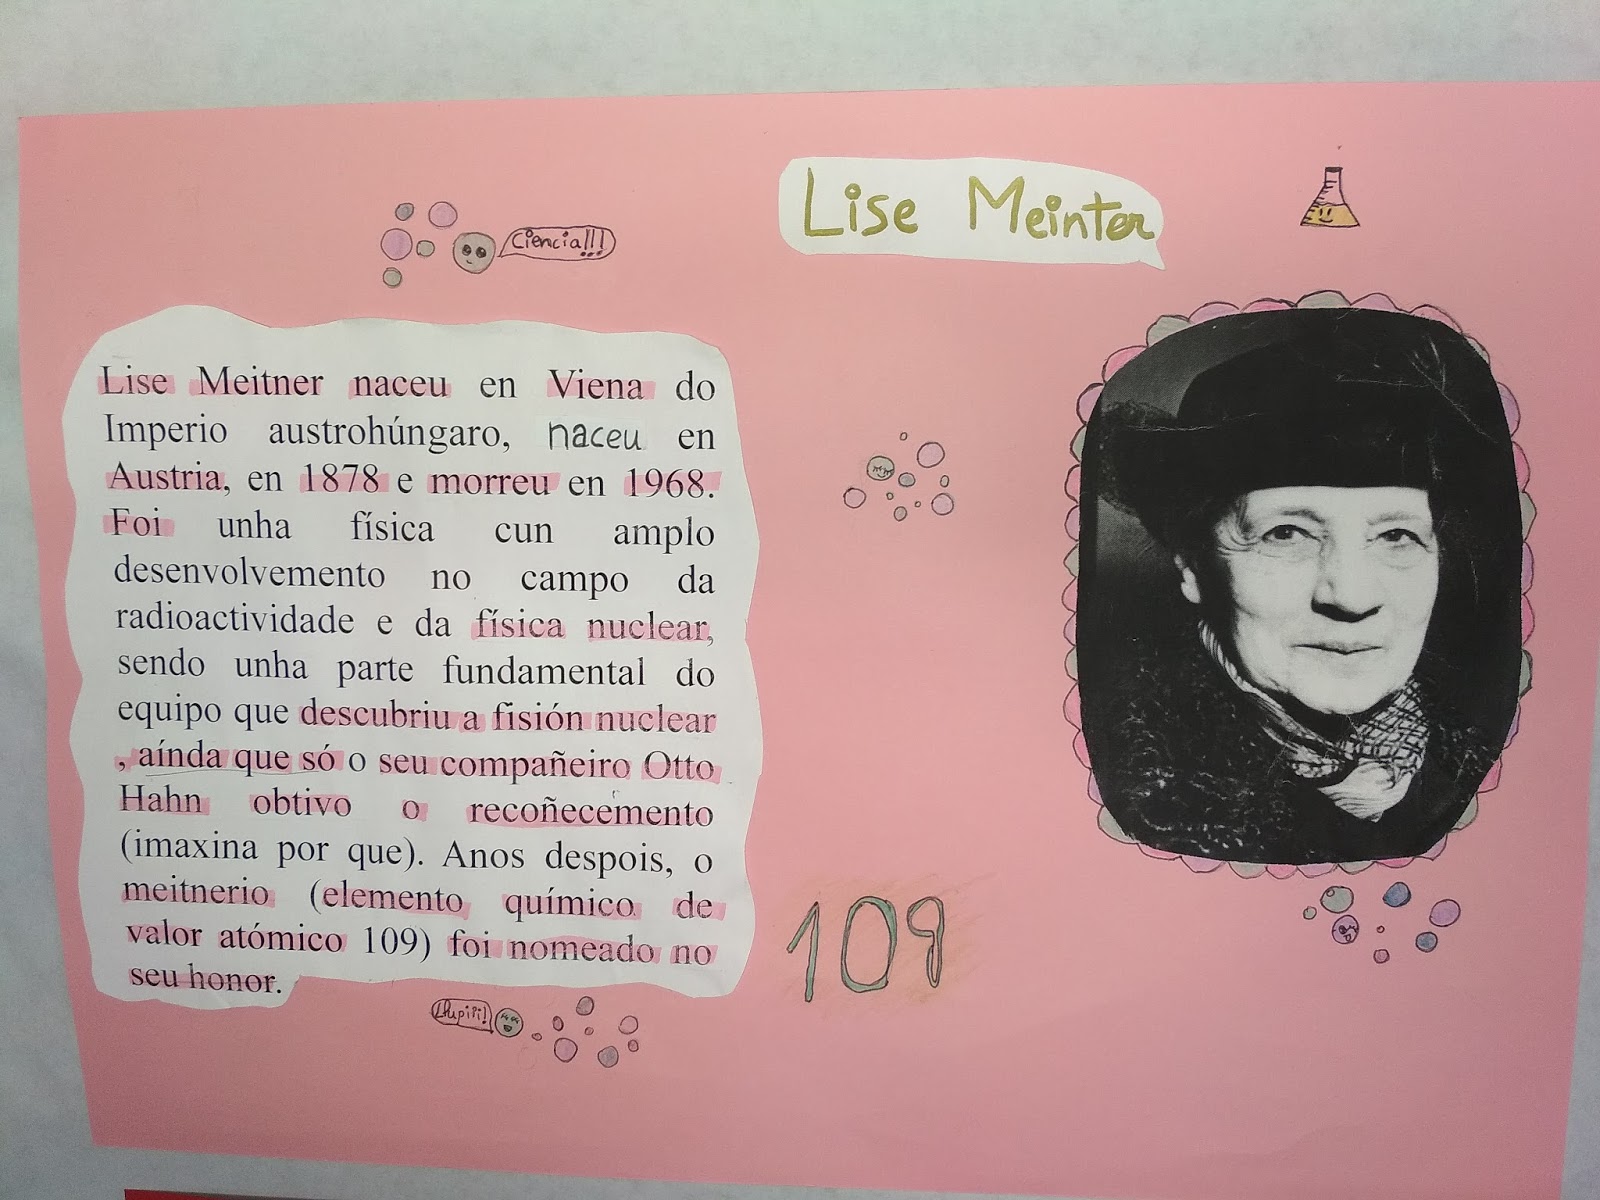 Lise Meinter
Ciencia!!!
Lise Meitner naceu en Viena do
Imperio austrohúngaro, naceu en
Austria, en 1878 e morreu en 1968.
Foi unha física cun amplo
desenvolvemento no campo da
radioactividade e da física nuclear,
sendo unha parte fundamental do
equipo que descubriu a fisión nuclear
, aínda que só o seu compañeiro Otto
Hahn obtivo o recoñecemento
(imaxina por que). Anos despois, o
meitnerio (elemento químico de
valor atómico 109) foi nomeado no
seu honor.
109